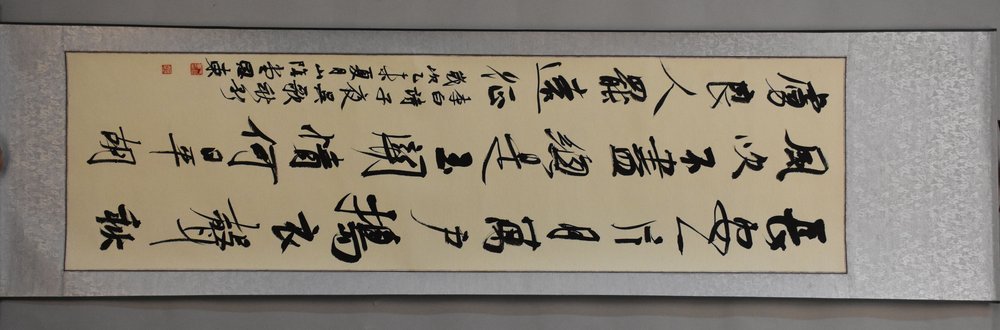 長安一片月萬戶搗衣聲秋
風吹不盡總是玉關情何日平胡
虜良人罷遠征
李白詩子夜吳歌秋歌
歲次乙未夏月山陰